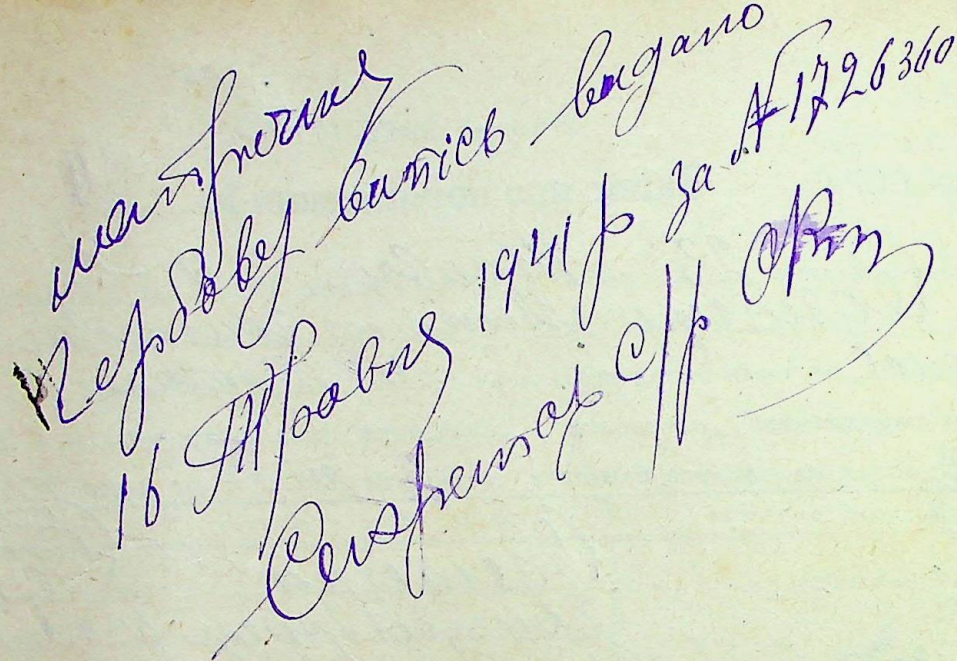 метрична
Гербову витісь видано
16 Травня 1941 р за № 1726360
Секретар с/р